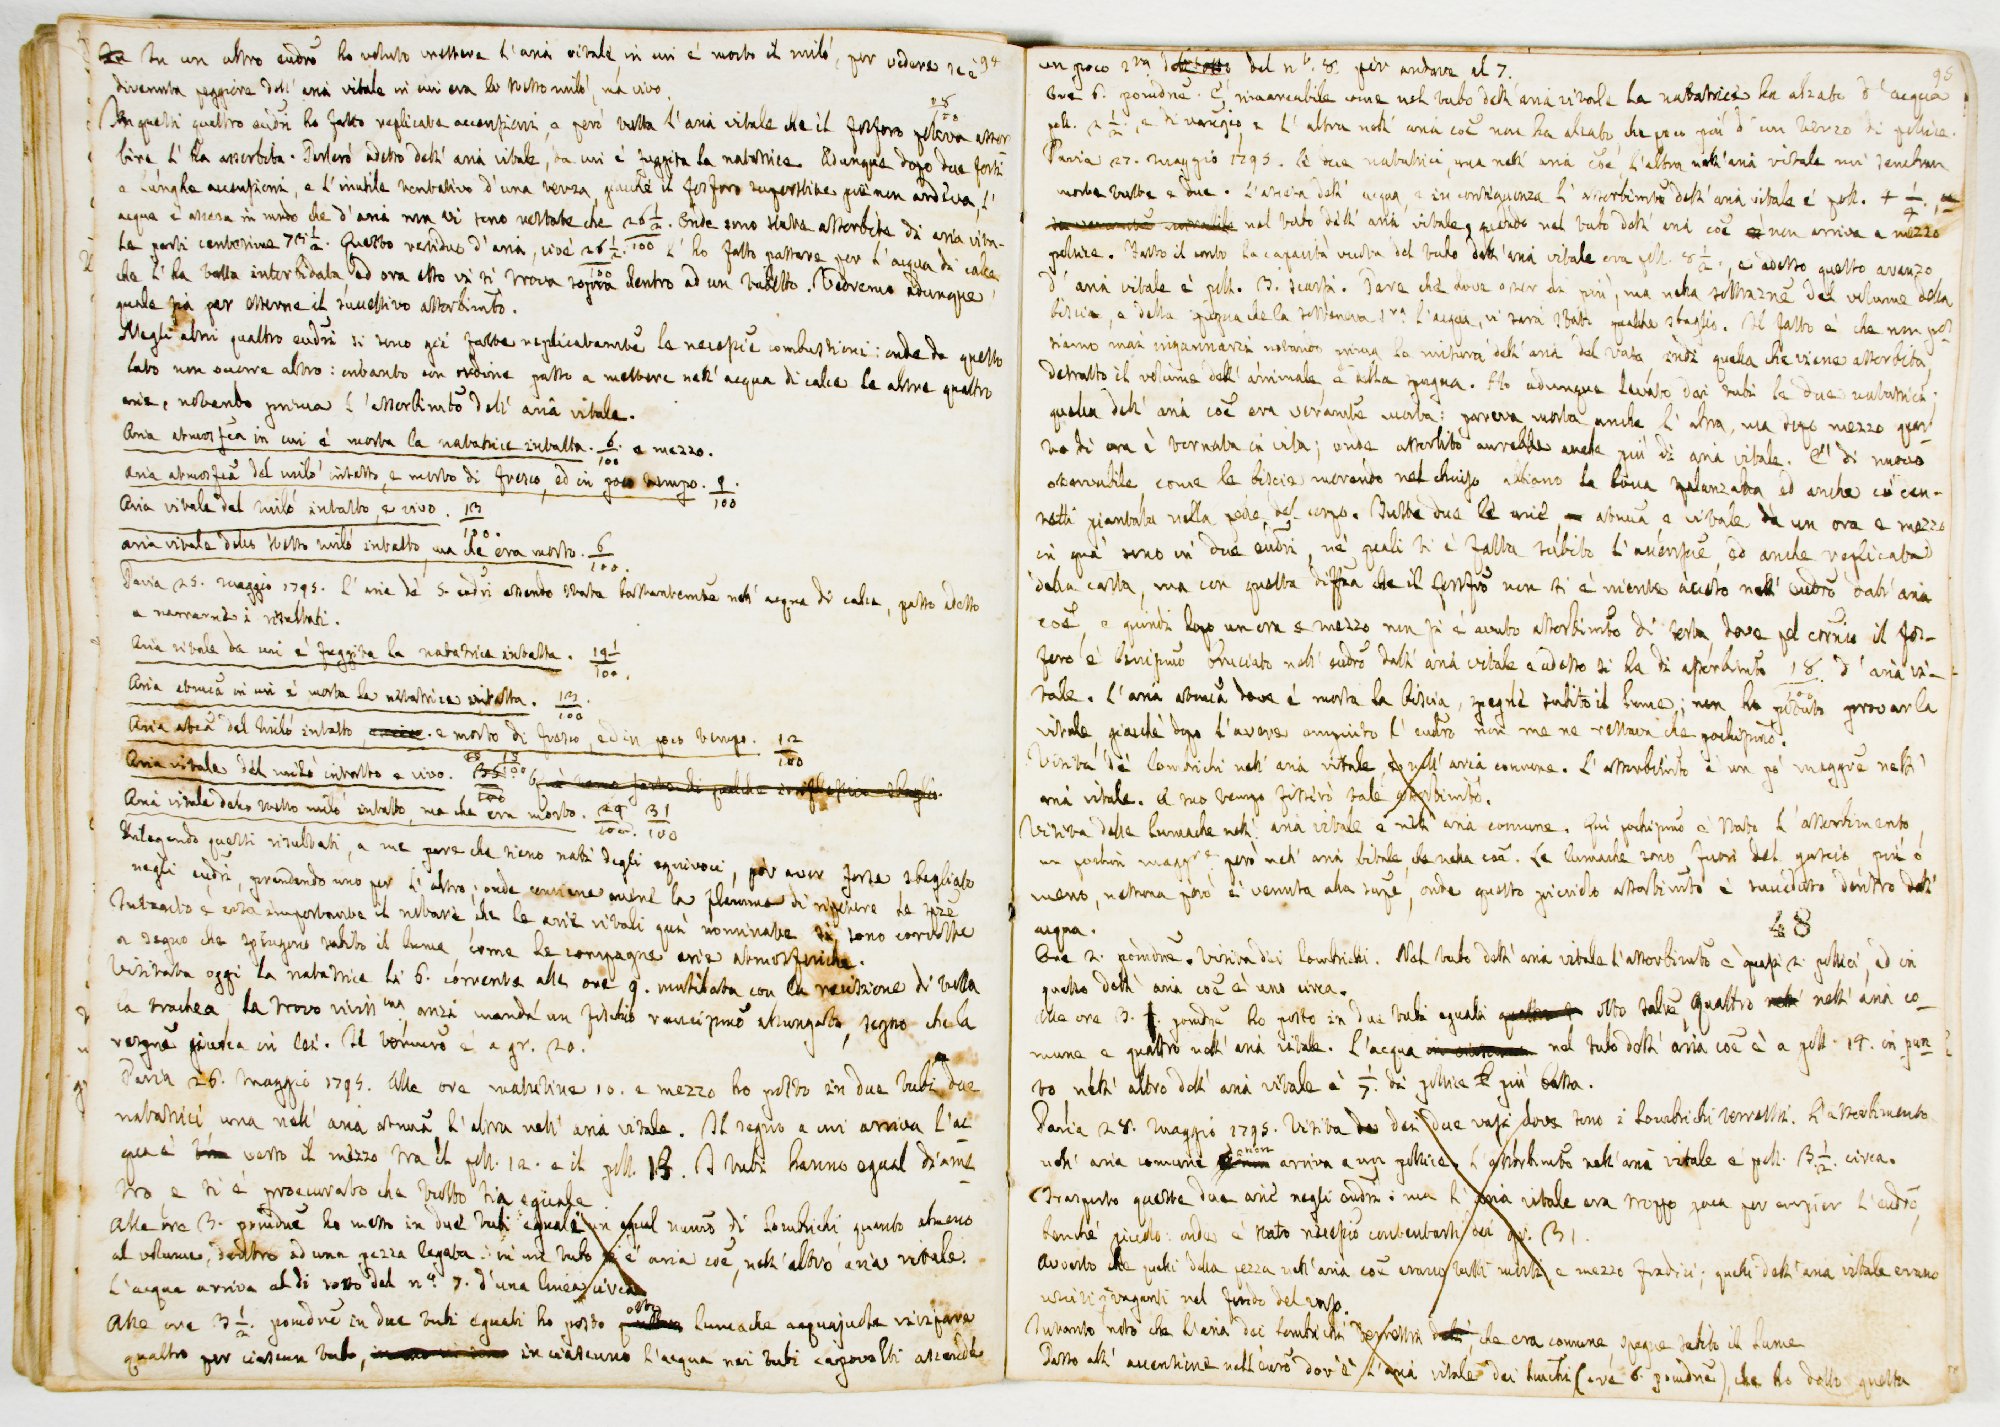 94
In un altro eudro ho voluto mettere l'aria vitale in cui è morto il milò, per vedere se è
divenuta peggiore dell'aria vitale in cui era lo stesso milò, ma vivo.
In questi quattro eudri ho fatto replicate accensioni, e però tutta l'aria vitale che il fosforo poteva assor
bire l'ha assorbita. Parlerò adesso dell'aria vitale, da cui è fuggita la natatrice. Adunque dopo due forti
e lunghe accensioni, e l'inutile tentativo d'una terza, giacchè il fosforo superstite più non ardeva, l'
acqua è ascesa in modo che d'aria non vi sono restate che 26 1/2/100. Onde sono state assorbite di aria vita-
le parti centesime 73 1/2. Questo residuo d'aria, cioè 26 1/2/100 l'ho fatto passare per l'acqua di calce
che l'ha tutta intorbidata, ed ora esso si trova sopra dentro ad un tubetto. Vedremo adunque
quale sia per esserne il successivo assorbimto.
Negli altri quattro eudri si sono già fatte replicatamte le necessie combustioni: onde da questo
lato non occorre altro: intanto con ordine passo a mettere nell'acqua di calce le altre quattro
arie, notando prima l'assorbimto dell'aria vitale.
Aria atmosfca in cui è morta la natatrice intatta. 6/100 e mezzo.
Aria atmosfca del milò intatto, e morto di fresco, ed in poco tempo. 9/100.
Aria vitale del milò intatto, e vivo. 13/100.
Aria vitale dello stesso milò intatto, ma che era morto. 6/100.
Pavia 25. maggio 1795. L'arie de' 5. eudri essendo state bastantemte nell'acqua di calce, passo adesso
a narrarne i risultati.
Aria vitale da cui è fuggita la natatrice intatta. 19 1/100.
Aria atmca in cui è morta la natatrice intatta. 13/100.
Aria atca del milò intatto, e morto di fresco, ed in poco tempo. 12/100
Aria vitale del milò intatto e vivo. 15/100
Aria vitale dello stesso milò intatto, ma che era morto. 29/100. 31/100
Rilegendo questi risultati, a me pare che sieno nati degli equivoci, per aver forse sbagliato
negli eudri, prendendo uno per l'altro; onde conviene avere la flemma di ripetere le spze
Intanto è cosa importante il notare che le arie vitali quì nominate si sono corrotte
a segno che spengono subito il lume, come le compagne arie atmosferiche.
Visitata oggi la natatrice li 6. corrente alle ore 9. mutilata con la recisione di tutta
la trachea la trovo vivissma anzi manda un fischio allungato, segno che la
Il termro è a gr. 20.
Pavia 26. maggio 1795. Alle ore matutine 10. e mezzo ho posto in due tubi due
natatrici una nell'aria atmca l'altra nell'aria vitale. Il segno a cui arriva l'ac
qua è verso il mezzo tra il poll. 12. e il poll. 13. I tubi hanno egual diame
tro e si è proccurato che tutto sia eguale
Alle ore 3. pomdne ho messo in due tubi eguali un egual numro di lombrichi, quanto almeno
al volume, dentro ad una pezza legata: in un tubo è aria coe, nell'altro aria vitale.
L'acqua arriva al di sotto del nº 7. d'una linea circa
Alle ore 3 1/2. pomdne in due tubi eguali ho posto otto lumache acquajuole vivipare
quattro per ciascun tubo, in ciascuno l'acqua nei tubi capovolti ascende
95
un poco sra del nº. 8. per andare al 7.
Ore 6. pomdne. È rimarcabile come nel tubo dell'aria vitale la natatrice ha alzato d'acqua
poll. 2 1/2, e l'altra nell'aria coe non ha alzato che poco più d'un terzo di pollice.
Pavia 27. maggio 1795. Le due natatrici, una nell'aria coe, l'altra nell'aria vitale mi sembran
morte tutte e due. L'ascesa dell'acqua, e in conseguenza l'assorbimto dell'aria vitale è poll. 4 1/4.,
nel tubo dell'aria vitale, quando nel tubo dell'aria coe non arriva a mezzo
pollice. Fatto il conto la capacità vuota del tubo dell'aria vitale era poll. 8 1/2., e adesso questo avanzo
d'aria vitale è poll. 3. scarsi. Pare che dove esser di più, ma nella sottrazne del volume della
biscia, e della spugna che la sosteneva sra l'acqua, vi sarà stato qualche sbaglio. Il fatto è che non pos
siamo mai ingannarsi notando prima la misura dell'aria del vaso indi quella che viene assorbita,
detratto il volume dell'animale e della spugna. Ho adunque levato dai tubi le due natatrici;
quella dell'aria coe era veramte morta: pareva morta anche l'altra, ma dopo mezzo quar
to di ora è tornata in vita; onde assorbito avrebbe anche più di aria vitale. È di nuovo
osservabile come le biscie morendo nel chiuso abbiano la bocca spalancata ed anche
piantati nella del corpo. Tutte due le arie, atmca e vitale da un ora e mezzo
in quà sono in due eudri, ne' quali si è fatta subito l'accensne, ed anche replicata
della carta, ma con questa diffza che il fosforo non si è niente acceso nell'eudro dell'aria
coe, e quindi dopo un ora e mezzo non si è avuto assorbimto di sorta, dove pel contrario il fos-
foro è benissimo bruciato nell'eudro dell'aria vitale e adesso si ha di assorbimto 18/100 d'aria vi-
tale. L'aria atmca dove è morta la biscia, spegne subito il lume; non ho potuto provar la
vitale giacchè dopo l'avere empiuto l'eudro non me ne restava che pochissimo.
Visita de' lombrichi nell'aria vitale, e nell'aria comune. L'assorbimto è un pò maggre nell'
aria vitale. A suo tempo fisserò tale assorbimto.
Visita delle lumache nell'aria vitale e nell'aria comune. Qui pochissimo è stato l'assorbimento,
un pochin maggre però nell'aria vitale che nella coe. Le lumache sono fuori del guscio più o
meno, nessuna però è venuta alla supfe, onde questo picciolo assorbimto è succeduto dentro dell'
acqua.
48
Ore 2. pomdne. Visita dei lombrichi. Nel tubo dell'aria vitale l'assorbimto è quasi 2. pollici, ed in
questo dell'aria coe è uno circa.
Alle ore 3. pomdne ho posto in due tubi eguali otto talpe quattro nell'aria co-
mune e quattro nell'aria vitale. L'acqua nel tubo dell'aria coe è a poll. 14. in pun
to, nell'altro dell'aria vitale è 1/7. di pollice più bassa.
Pavia 28. maggio 1795. Visita dei due vasi dove sono i lombrichi terrestri. L'assorbimento
nell'aria comune non arriva a un pollice. L'assorbimto nell'aria vitale è poll. 3 1/2. circa.
Trasporto queste due arie negli eudri: ma l'aria vitale era troppo poca per empier l'eudro,
benchè piccolo: onde è stato necessrio contentarsi dei gr. 31.
Avverto che quelli della pezza nell'aria coe erano tutti morti e mezzo fradici; quelli dell'aria vitale erano
usciti, vaganti nel fondo del vaso.
Intanto noto che l'aria dei lombrichi terrestri, che era comune spegne subito il lume
Passo all'accensione nell'eudro dov'è l'aria vitale dei lombchi (ore 6. pomdne), che ho dello questa